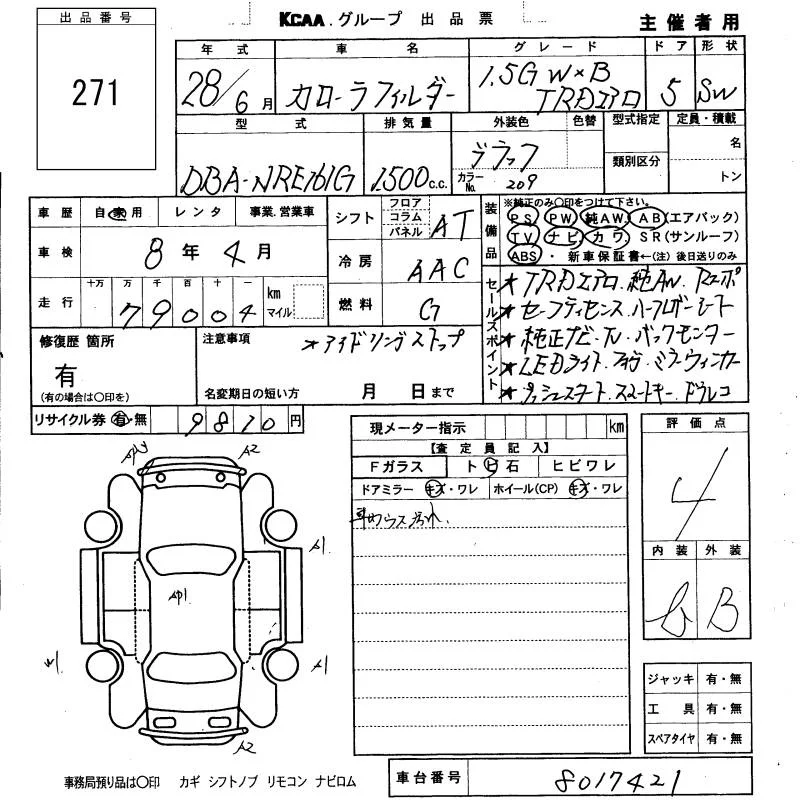 出品番号
271
KCAA.グループ 出品票
主催者用
年式 車名 グレード ドア 形状
28/6月 カローラフィルダー 1.5G W×B TRDエアロ 5 SW
型式 排気量 外装色 色替 型式指定 定員・積載
DBA-NRE161G 1500c.c. ブラック
カラーNo. 209
類別区分
名
トン
車歴 自家用 レンタ 事業.営業車
車検 8年4月
走行 十万 万 千 百 十 一
79004 km マイル
シフト フロア コラム パネル AT
冷房 AAC
燃料 G
装備品
※純正のみ○印をつけて下さい。
PS PW 純AW AB(エアバック)
TV ナビ カワ SR(サンルーフ)
ABS・新車保証書←(注)後日送りのみ
セールスポイント
★TRDエアロ.純AW.
★セーフティセンス.ハーフレザーシート
★純正ナビ.TV.バックモンター
★LEDライト.ミラーウィンカー
★プッシュスタート.スマートキー.ドラレコ
修復歴 箇所
有
(有の場合は○印を)
注意事項
★アイドリングストップ
名変期日の短い方 月 日まで
リサイクル券 有・無 9810円
現メーター指示 km
【査定員記入】
Fガラス ト ビ 石 ヒビワレ
ドアミラー キズ・ワレ ホイール(CP) キズ・ワレ
評価点
4
内装 外装
b B
A2
A1
AP1
W1
A1
A2
ジャッキ 有・無
工具 有・無
スペアタイヤ 有・無
事務局預り品は○印 カギ シフトノブ リモコン ナビロム
車台番号 8017421